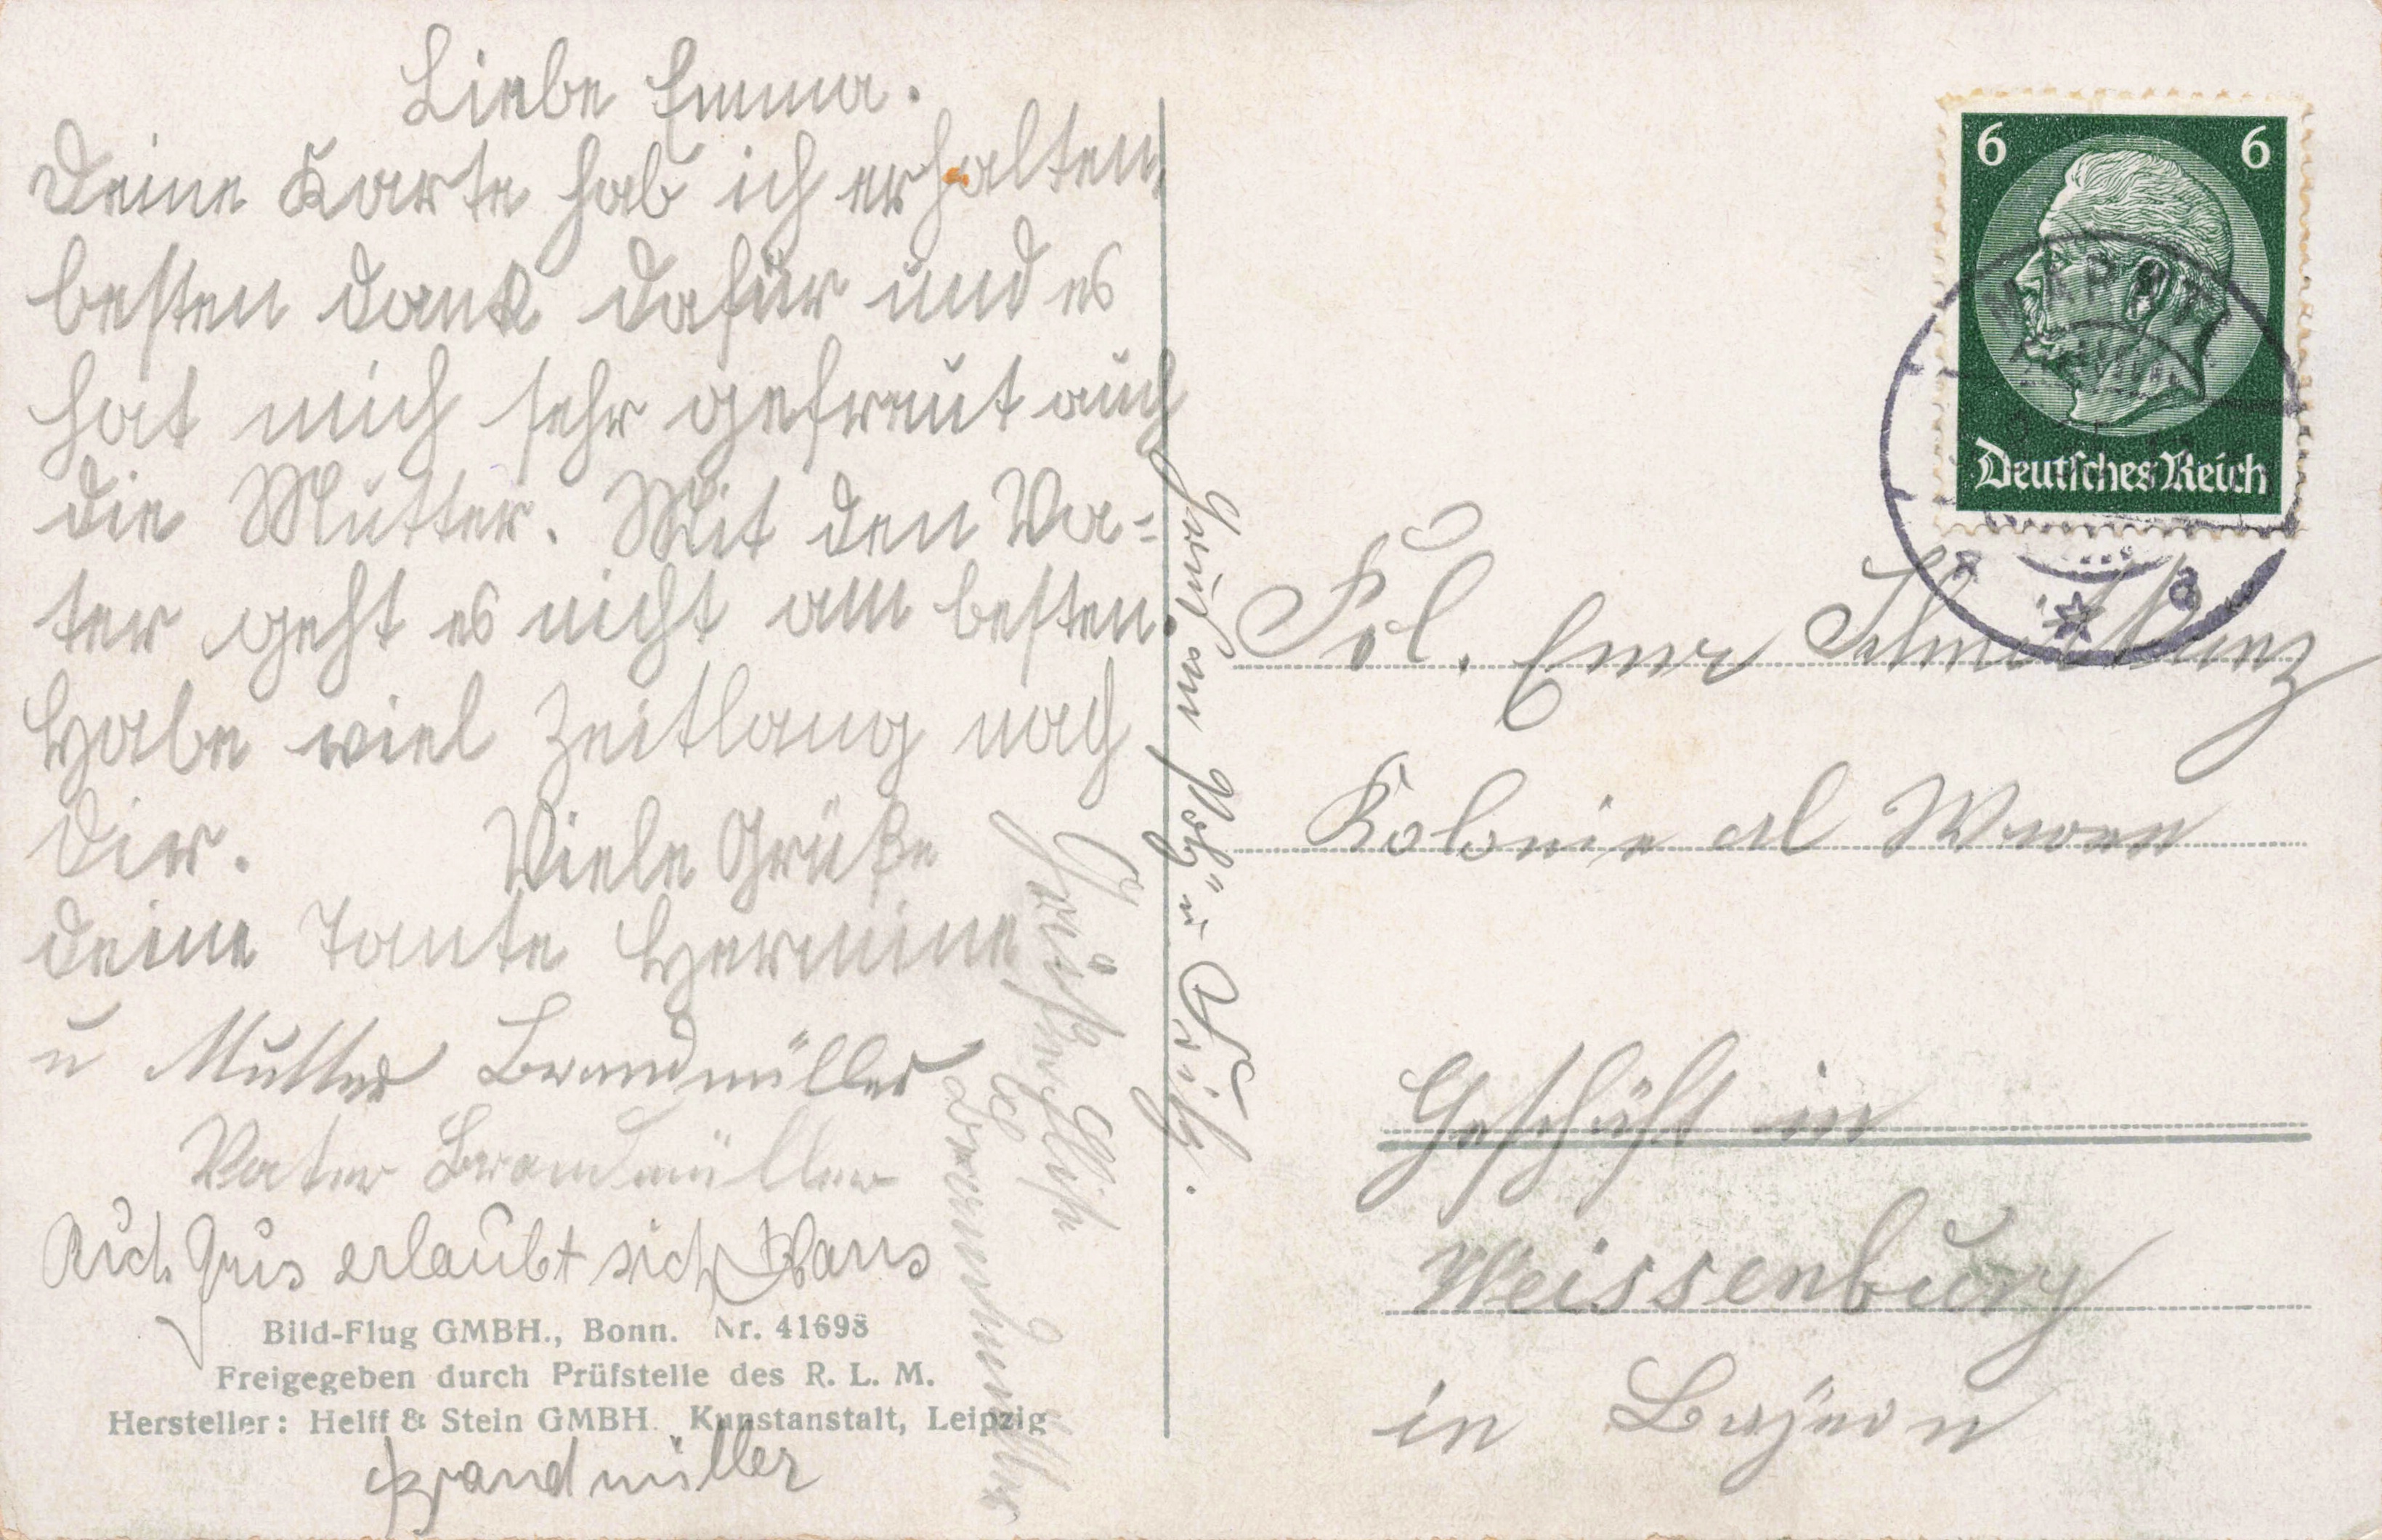 Liebe Emma.
Deine Karte hab ich erhalten,
besten Dank dafür und es
hat mich sehr gefreut auch
die Mutter. Mit den Va-
ter geht es nicht am besten.
Habe viel Zeitlang nach
Dir. Viele Grüße
deine Tante Hermine
u Mutter Brandmüller
Vater Brandmüller
Auch Grus erlaubt sich Hans
Brandmüller
Bild-Flug GMBH., Bonn. Nr. 41698
Freigegeben durch Prüfstelle des R. L. M.
Hersteller: Helff & Stein GMBH. Kunstanstalt, Leipzig
6 6
Deutsches Reich
a
Frl.
Kolonial Waren
Geschäft in
Weissenburg
in Bayern